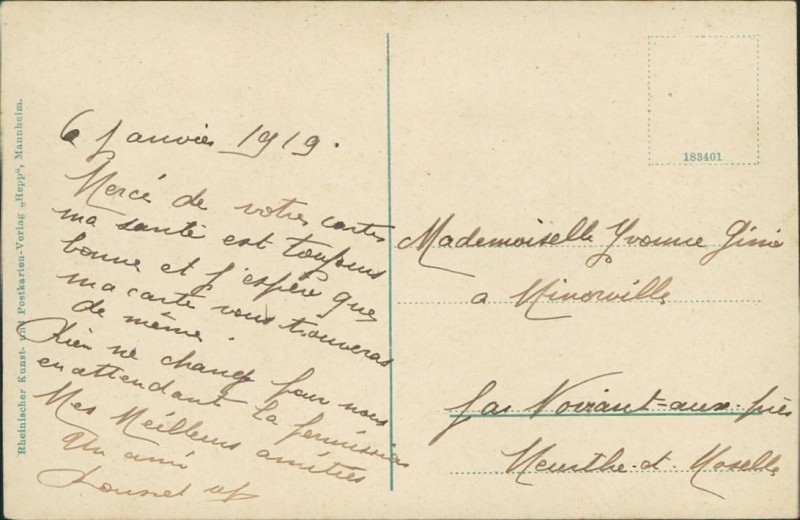 Rheinischer Kunst- und Postkarten-Verlag „Hepp“, Mannheim.
6 Janvier 1919.
Mercé de votres cartes
ma santé est toujours
bonne et j'espère que
ma carte vous trouveras
de même.
Rien ne change pour nous
en attendant la permission
Mes Meilleurs amitiés
Un ami
183401
Mademoiselle Yvonne
a Minorville
par Noviant-aux-près
Meurthe-et-Moselle